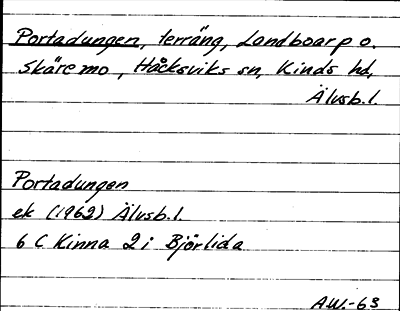 Portadungen, terräng, Landboarp o.
Skäremo, Håcksviks sn, Kinds hd,
Älvsb. l.
Portadungen
ek (1962) Älvsb. l.
6 C Kinna 2 i Björlida
AW.-63